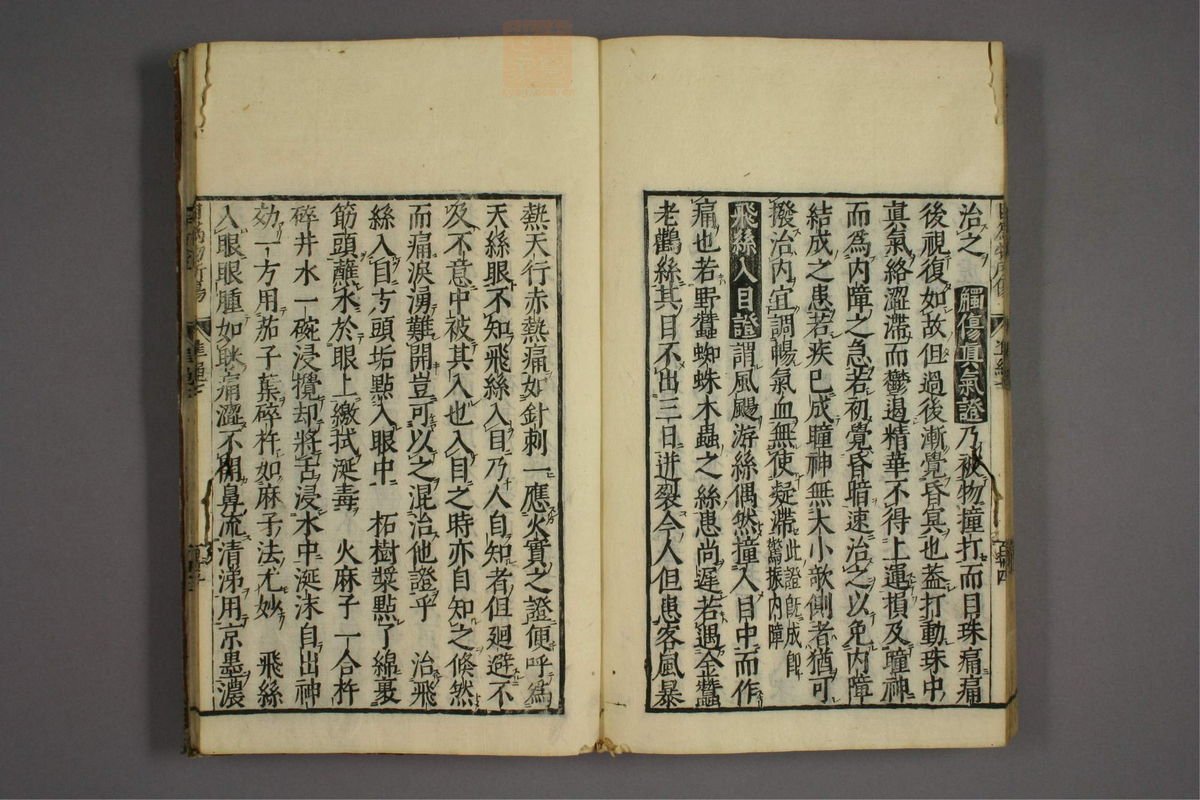 治之 觸傷眞氣證 乃被物撞打而目珠痛痛
後視復如故但過後漸覺昏冥也蓋打動珠中
眞氣絡澀滯而鬱遏精華不得上運損及瞳神
而爲內障之急若初覺昏暗速治之以免內障
結成之患若疾已成瞳神無大小欹側者猶可
撥治內宜調暢氣血無使疑滯此證旣成卽
驚振內障
飛絲入目證 謂風颺游絲偶然撞入目中而作
痛也若野蠶蜘蛛木蟲之絲患尚遲若遇金蠶
老鸛絲其目不出三日迸裂今人但患客風暴
熱天行赤熱痛如針刺一應火實之證便呼爲
天絲眼不知飛絲入目乃人自知者但廻避不
及不意中被其入也入目之時亦自知之倏然
而痛淚湧難開豈可以之混治他證乎 治飛
絲入目方頭垢點入眼中 柘樹漿點了綿裹
筋頭蘸水於眼上繳拭涎毒 火麻子一合杵
碎井水一碗浸攪却將舌浸水中涎沫自出神
効一方用茄子葉碎杵如麻子法尤妙 飛絲
入眼眼腫如眯痛澀不開鼻流清涕用京墨濃